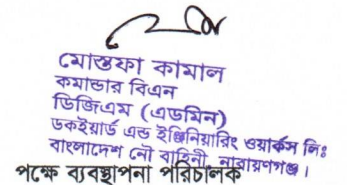 মোস্তফা কামাল
কমান্ডার বিএন
ডিজিএম (এডমিন)
ডকইয়ার্ড এন্ড ইঞ্জিনিয়ারিং ওয়ার্কস লিঃ
বাংলাদেশ নৌ বাহিনী, নারায়ণগঞ্জ।
পক্ষে ব্যবস্থাপনা পরিচালক